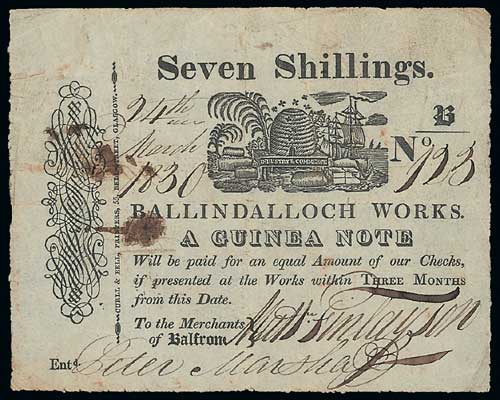 Seven Shillings.
24th
March
1830
INDUSTRY & COMMERCE
B
No. 123
BALLINDALLOCH WORKS.
A GUINEA NOTE
Will be paid for an equal Amount of our Checks,
if presented at the Works within THREE MONTHS
from this Date.
To the Merchants
of Balfron
Finlayson
Entd. Peter Marshall
CURLL & BELL, PRINTERS, GLASGOW.